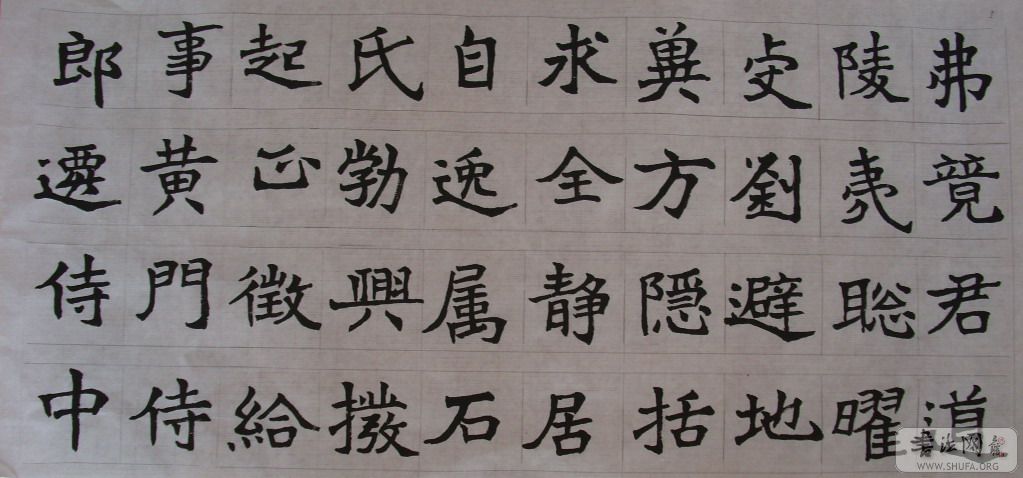 弗竟君道
陵夷聡曜
虔劉避地
冀方隠括
求全静居
自逸属石
氏勃興撥
起正徵給
事黄門侍
郎遷侍中
书法网
WWW.SHUFA.ORG